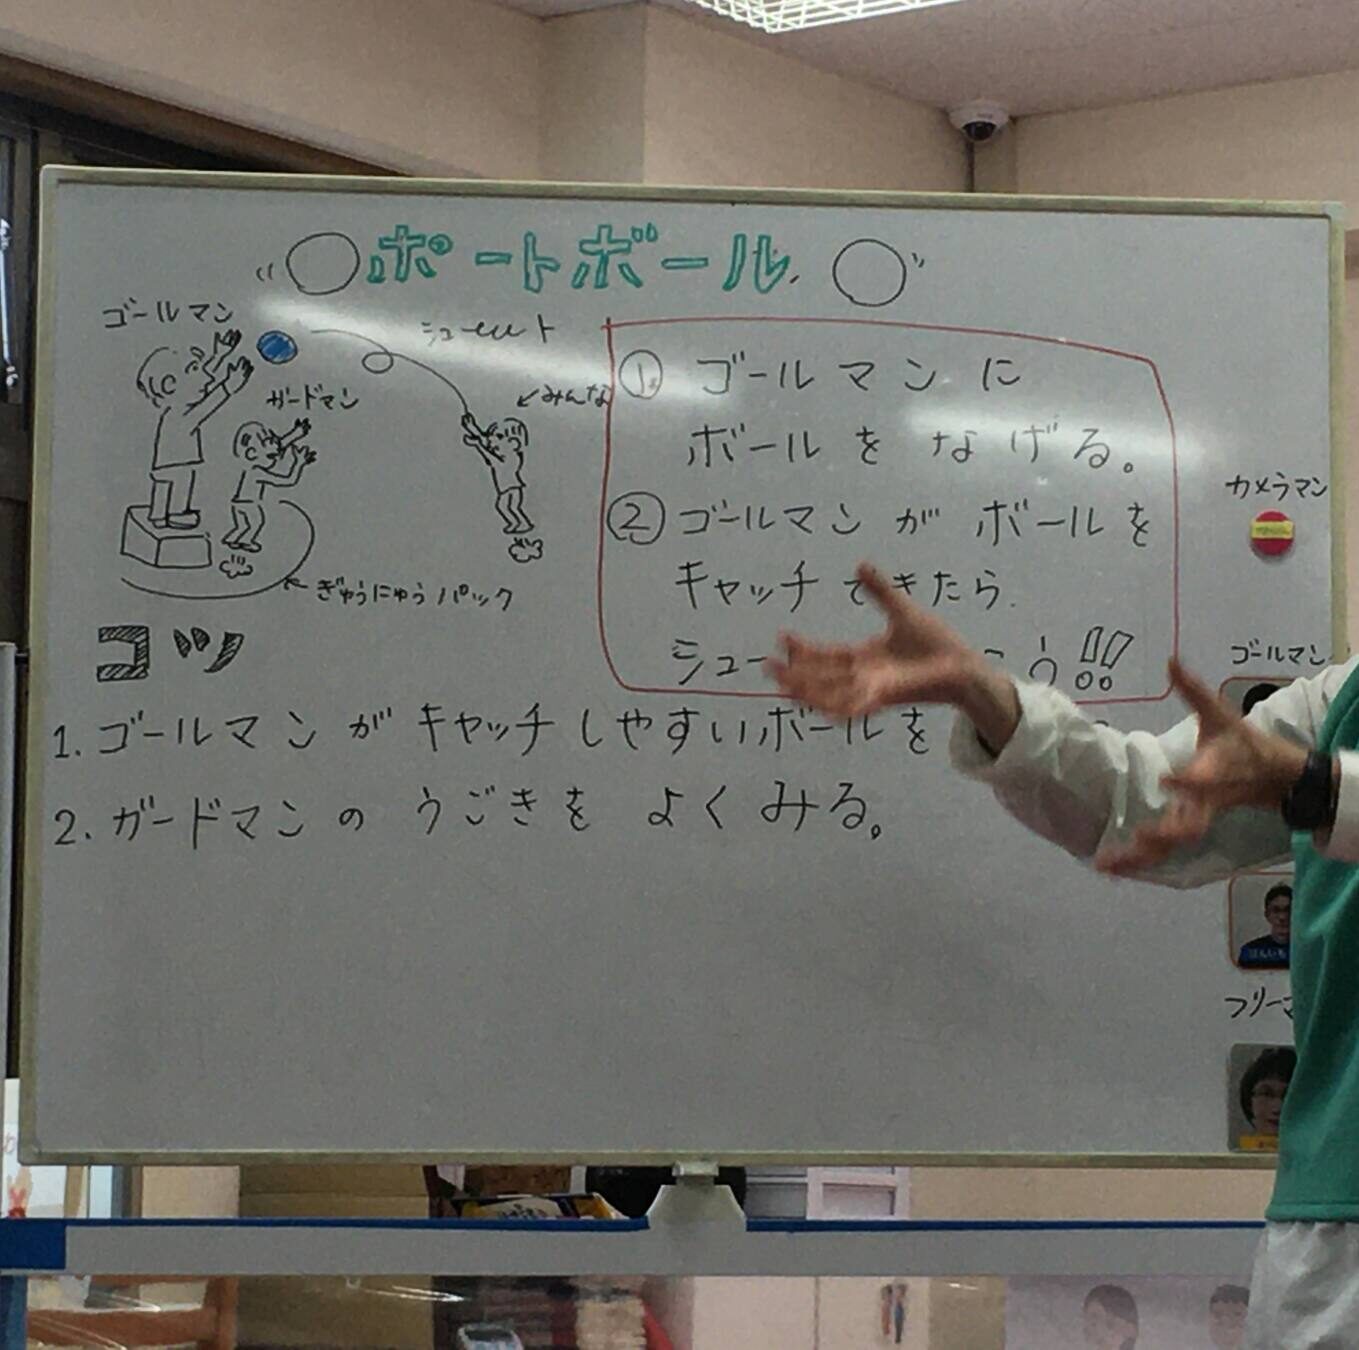 ポートボール
ゴールマン
シューーーート
ガードマン
みんな
ぎゅうにゅうパック
① ゴールマンに
ボールを なげる。
② ゴールマン が ボールを
キャッチできたら
シュー
う!!
コツ
1. ゴールマン が キャッチしやすいボールを
2. ガードマンの うごきを よくみる。
カメラマン
ゴールマン
フリーマ